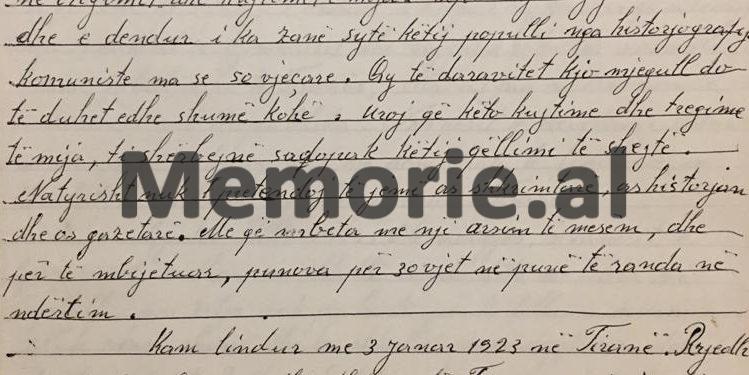 dhe e dendur i ka zanë sytë këtij populli nga historjografija
komuniste ma se sovjeçare. Qy të davavitet kjo mjegull do
të duhet edhe shumë kohë. Uroj që këto kujtime dhe tregime
të mija, t'i shërbejnë sadopak këtij qëllimi të shejtë.
Natyrisht nuk pretendoj të jemi as shkrimtarë, as historjan
dhe as gazetarë. Me që mbeta me një arsim të mesëm, dhe
për të mbijetuar, punova për 30 vjet në punë të randa në
ndërtim.
Kam lindur me 3 Janar 1923 në Tiranë. Rrjedh
Memorie.al